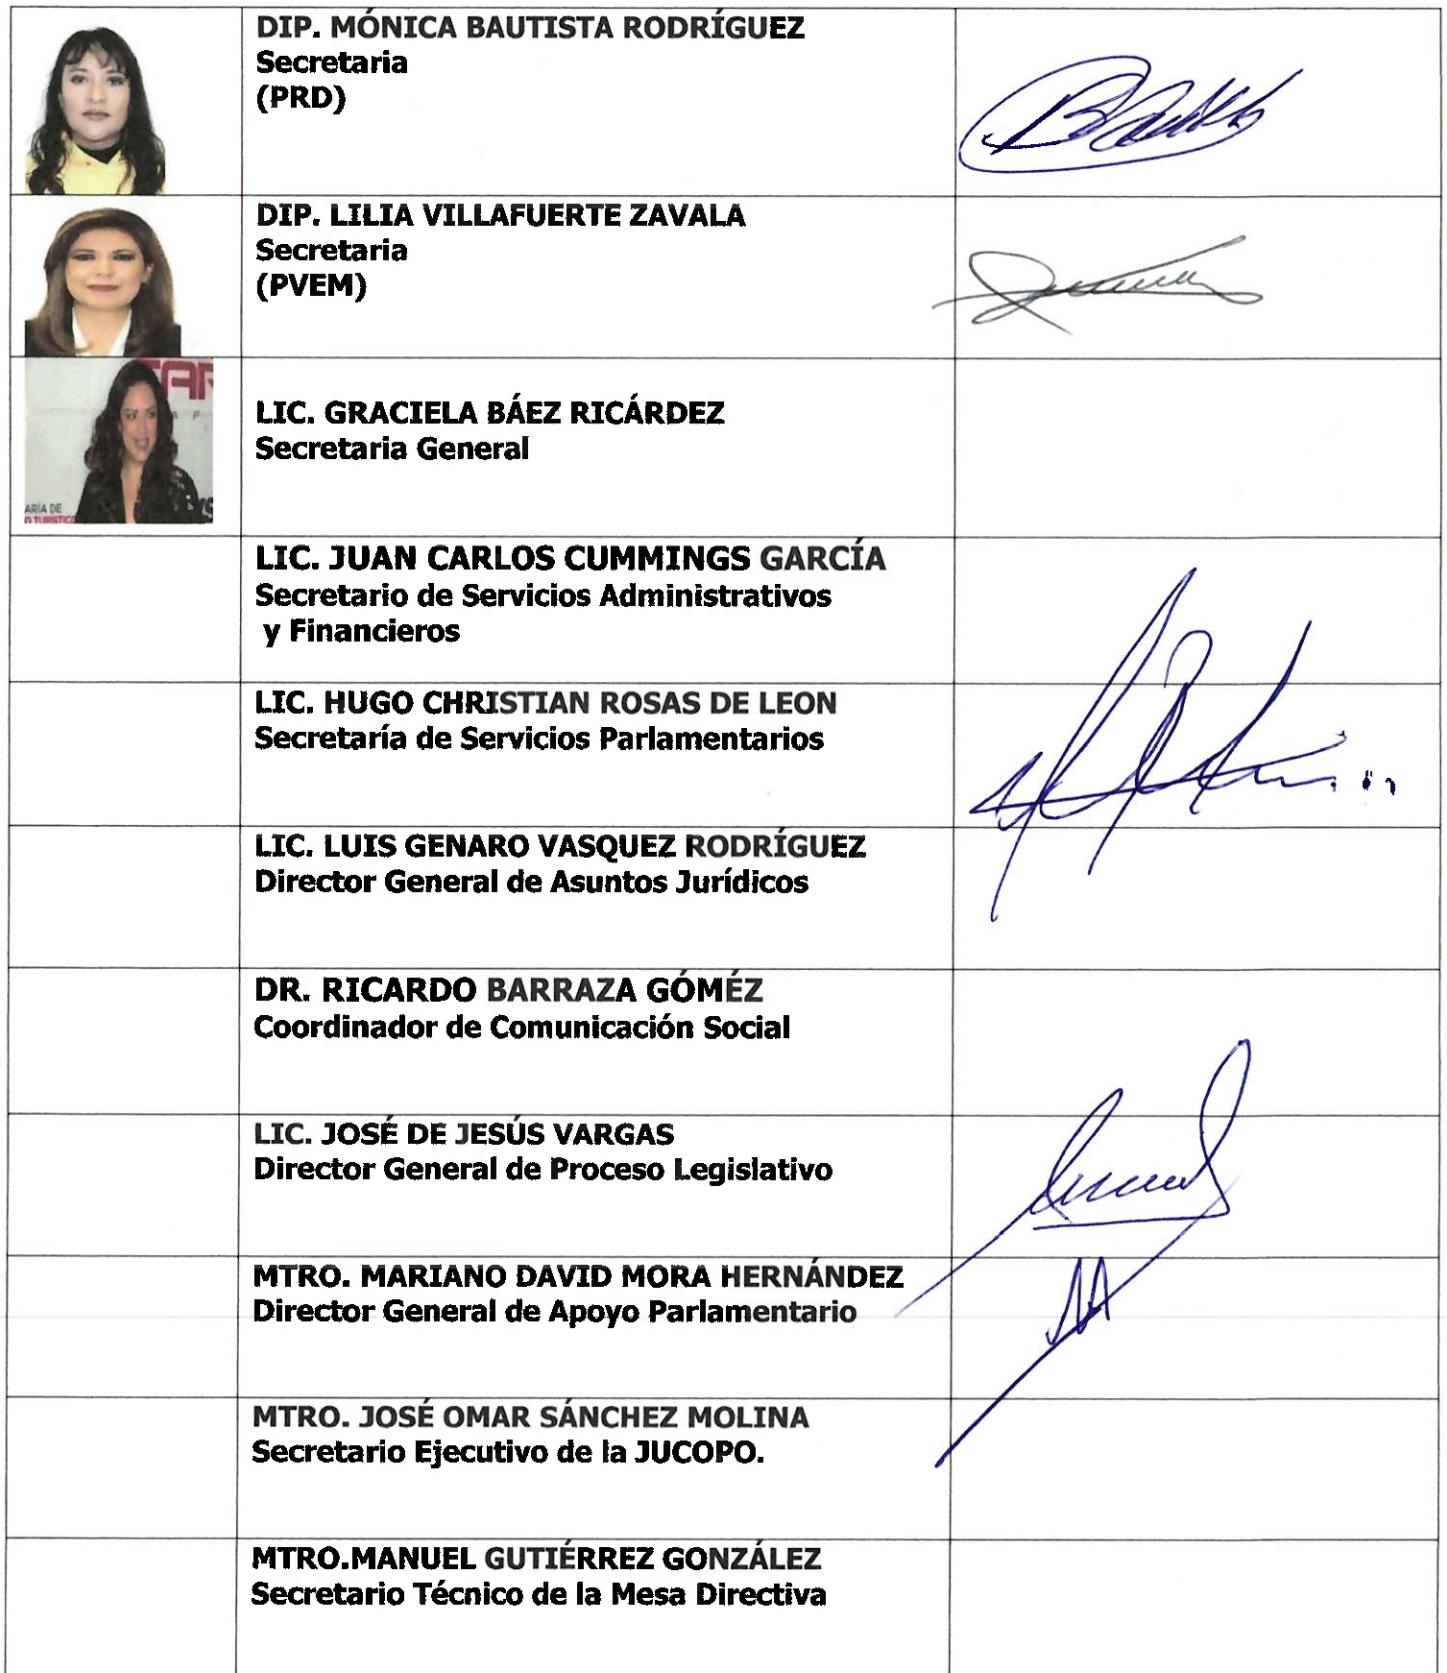 DIP. MÓNICA BAUTISTA RODRÍGUEZ
Secretaria
(PRD)
DIP. LILIA VILLAFUERTE ZAVALA
Secretaria
(PVEM)
LIC. GRACIELA BÁEZ RICÁRDEZ
Secretaria General
ARÍA DE
O TURÍSTICO
LIC. JUAN CARLOS CUMMINGS GARCÍA
Secretario de Servicios Administrativos
y Financieros
LIC. HUGO CHRISTIAN ROSAS DE LEON
Secretaría de Servicios Parlamentarios
LIC. LUIS GENARO VASQUEZ RODRÍGUEZ
Director General de Asuntos Jurídicos
DR. RICARDO BARRAZA GÓMÉZ
Coordinador de Comunicación Social
LIC. JOSÉ DE JESÚS VARGAS
Director General de Proceso Legislativo
MTRO. MARIANO DAVID MORA HERNÁNDEZ
Director General de Apoyo Parlamentario
MTRO. JOSÉ OMAR SÁNCHEZ MOLINA
Secretario Ejecutivo de la JUCOPO.
MTRO.MANUEL GUTIÉRREZ GONZÁLEZ
Secretario Técnico de la Mesa Directiva